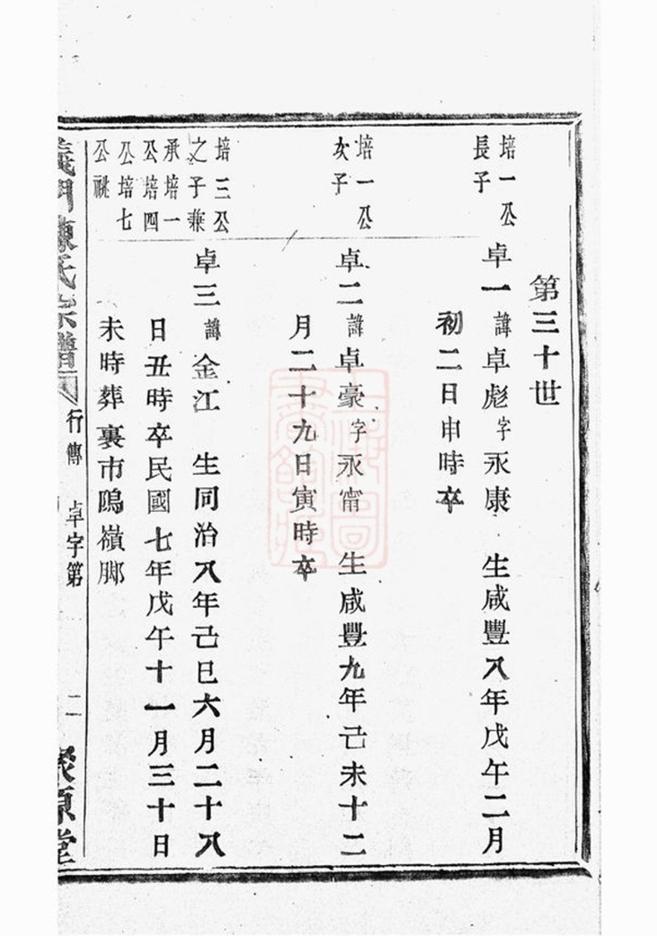 第三十世
培一公
長子
卓一諱卓彪字永康 生咸豐八年戊午二月
初二日申時卒
培一公
次子
卓二諱卓豪字永甯 生咸豐九年己未十二
月二十九日寅時卒
培三公
之子兼
承培一
公培四
公培七
公祧
卓三諱金江 生同治八年己巳六月二十八
日丑時卒民國七年戊午十一月三十日
未時葬裏市隖嶺脚
義門陳氏宗譜
行傳 卓字第
二
聚原堂